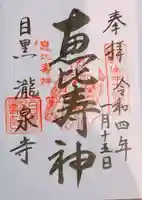 奉拝
令和四年
一月十五日
恵比寿神
目黒 瀧泉寺